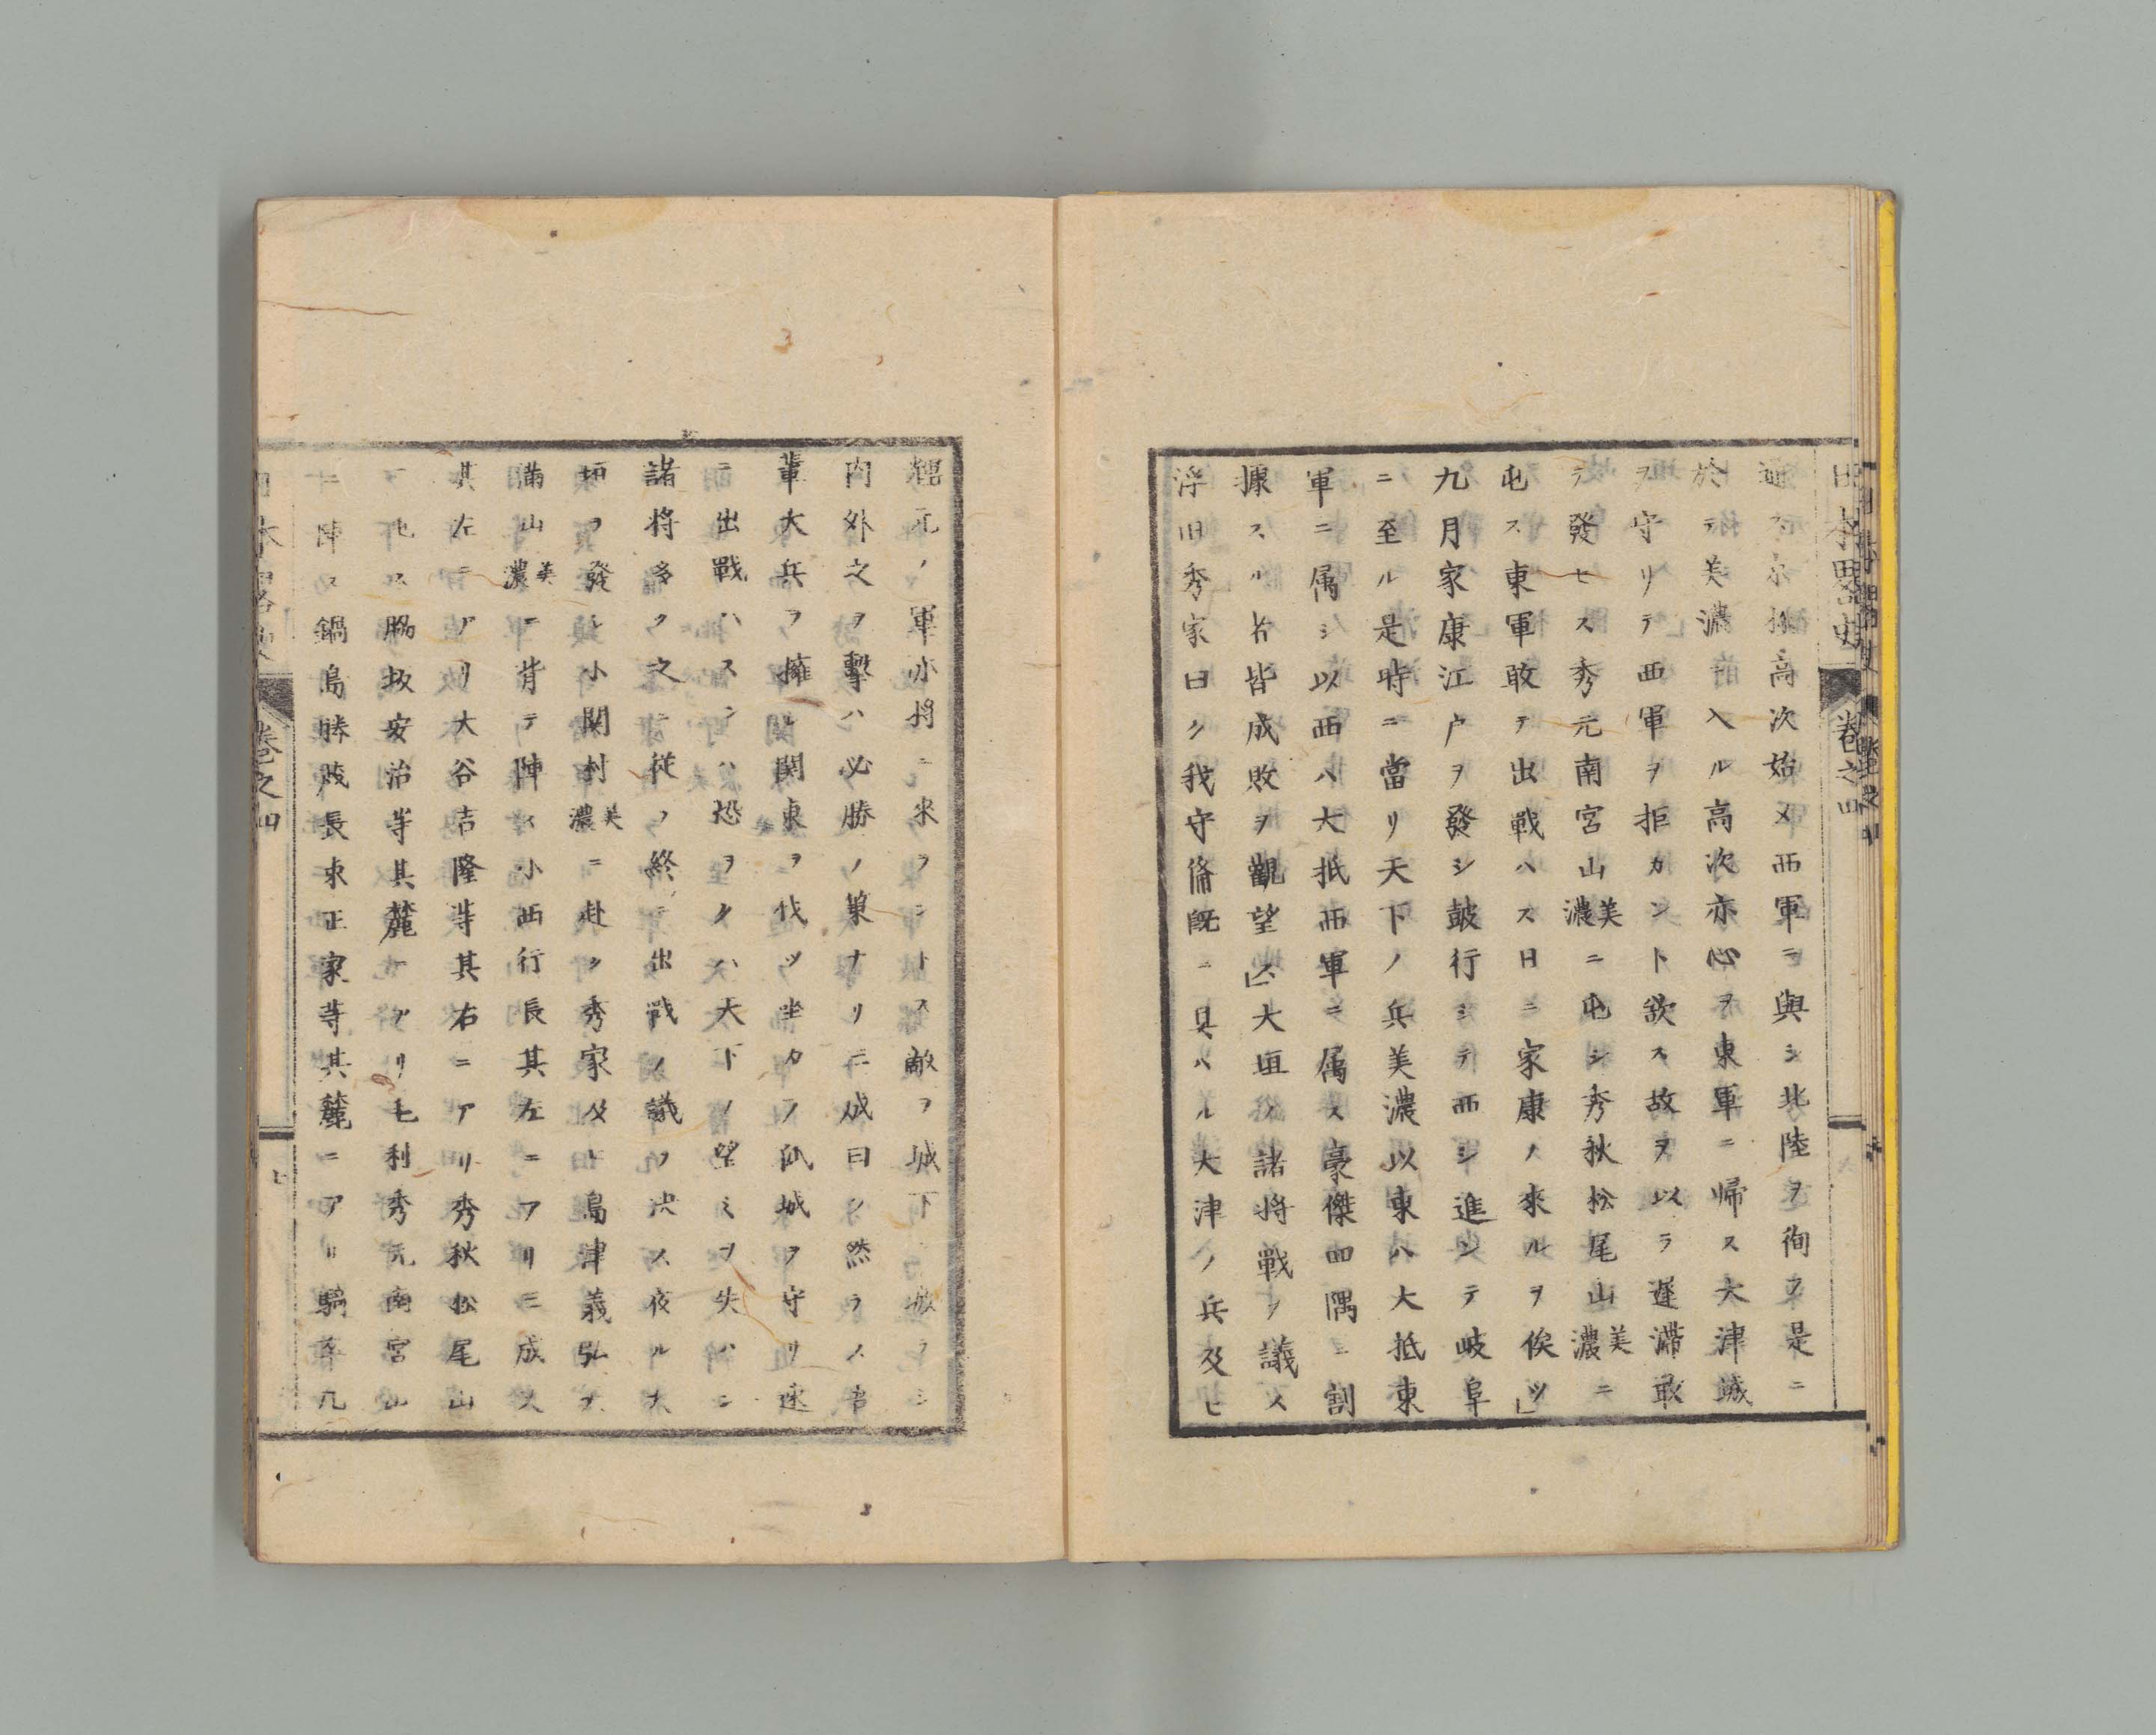 日本畧史 卷之四
通ス京極高次始メ西軍ニ與シ北陸ヲ徇フ是ニ
於テ美濃ニ入ル高次亦心ヲ東軍ニ帰ス大津城
ヲ守リテ西軍ヲ拒カント欲ス故ヲ以ラ遅滞敢
テ發セス秀元南宮山美濃ニ屯シ秀秋松尾山美濃ニ
屯ス東軍敢テ出戰ハス日ニ家康ノ來ルヲ俟ツ」
九月家康江戸ヲ發シ鼓行シテ西シ進ンテ岐阜
ニ至ル是時ニ當リ天下ノ兵美濃以東ハ大抵東
軍ニ属シ以西ハ大抵西軍ニ属ス豪傑四隅ニ割
據スル者皆成敗ヲ觀望ス」大垣ノ諸将戰ヲ議ス
浮田秀家曰ク我守備既ニ具ハル大津ノ兵及ヒ
輝元ノ軍亦将ニ来ラントス敵ヲ城下ニ
内外之ヲ擊ハ必勝ノ策ナリ三成曰ク然ラス吾
輩大兵ヲ擁シ関東ヲ伐ツ坐カラ孤城ヲ守リ速
ニ出戰ハスンハ恐ラクハ天下ノ望ミヲ失ハン
諸将多ク之ニ從フ終ニ出戰ノ議ヲ决ス夜ル大
垣ヲ發シ小関村美濃ニ赴ク秀家及ヒ島津義弘天
満山美濃ニ背テ陣ス小西行長其左ニアリ三成又
其左ニアリ大谷吉隆等其右ニアリ秀秋松尾山
ニ屯ス脇坂安治等其麓ニアリ毛利秀元南宮山
ニ陣ス鍋島勝茂長束正家等其麓ニアリ騎卒凡
日本畧史 卷之四 七